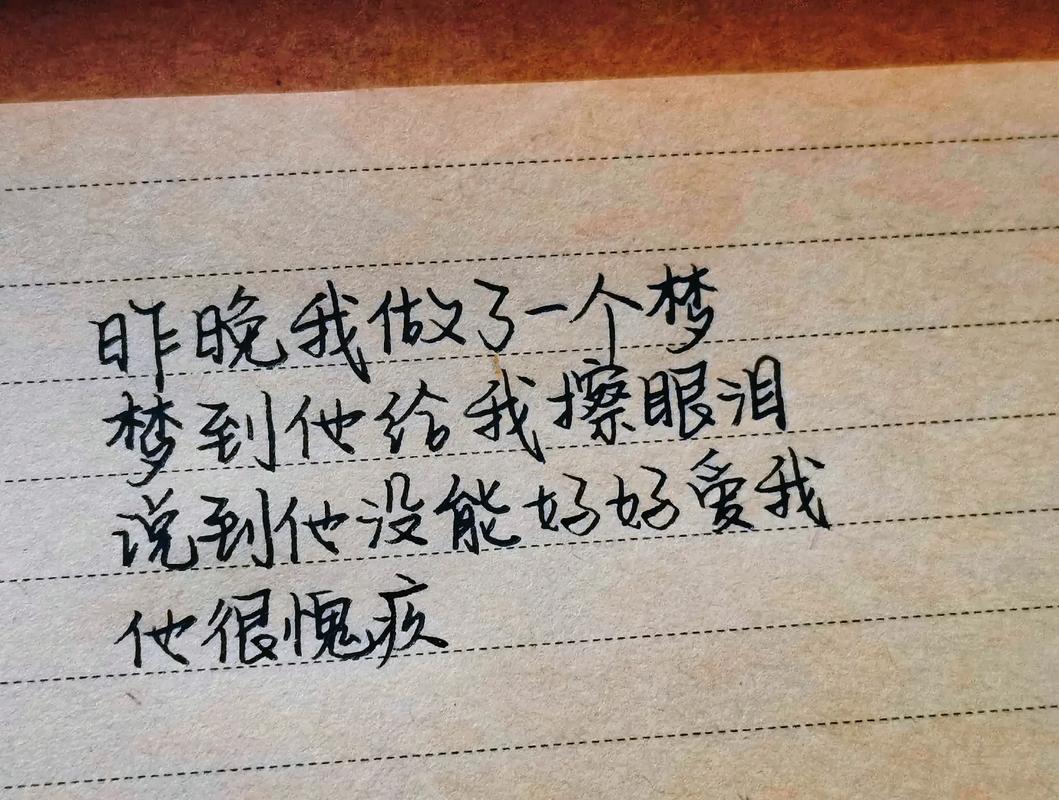 昨晚我做了一个梦
梦到他给我擦眼泪
说到他没能好好爱我
他很愧疚